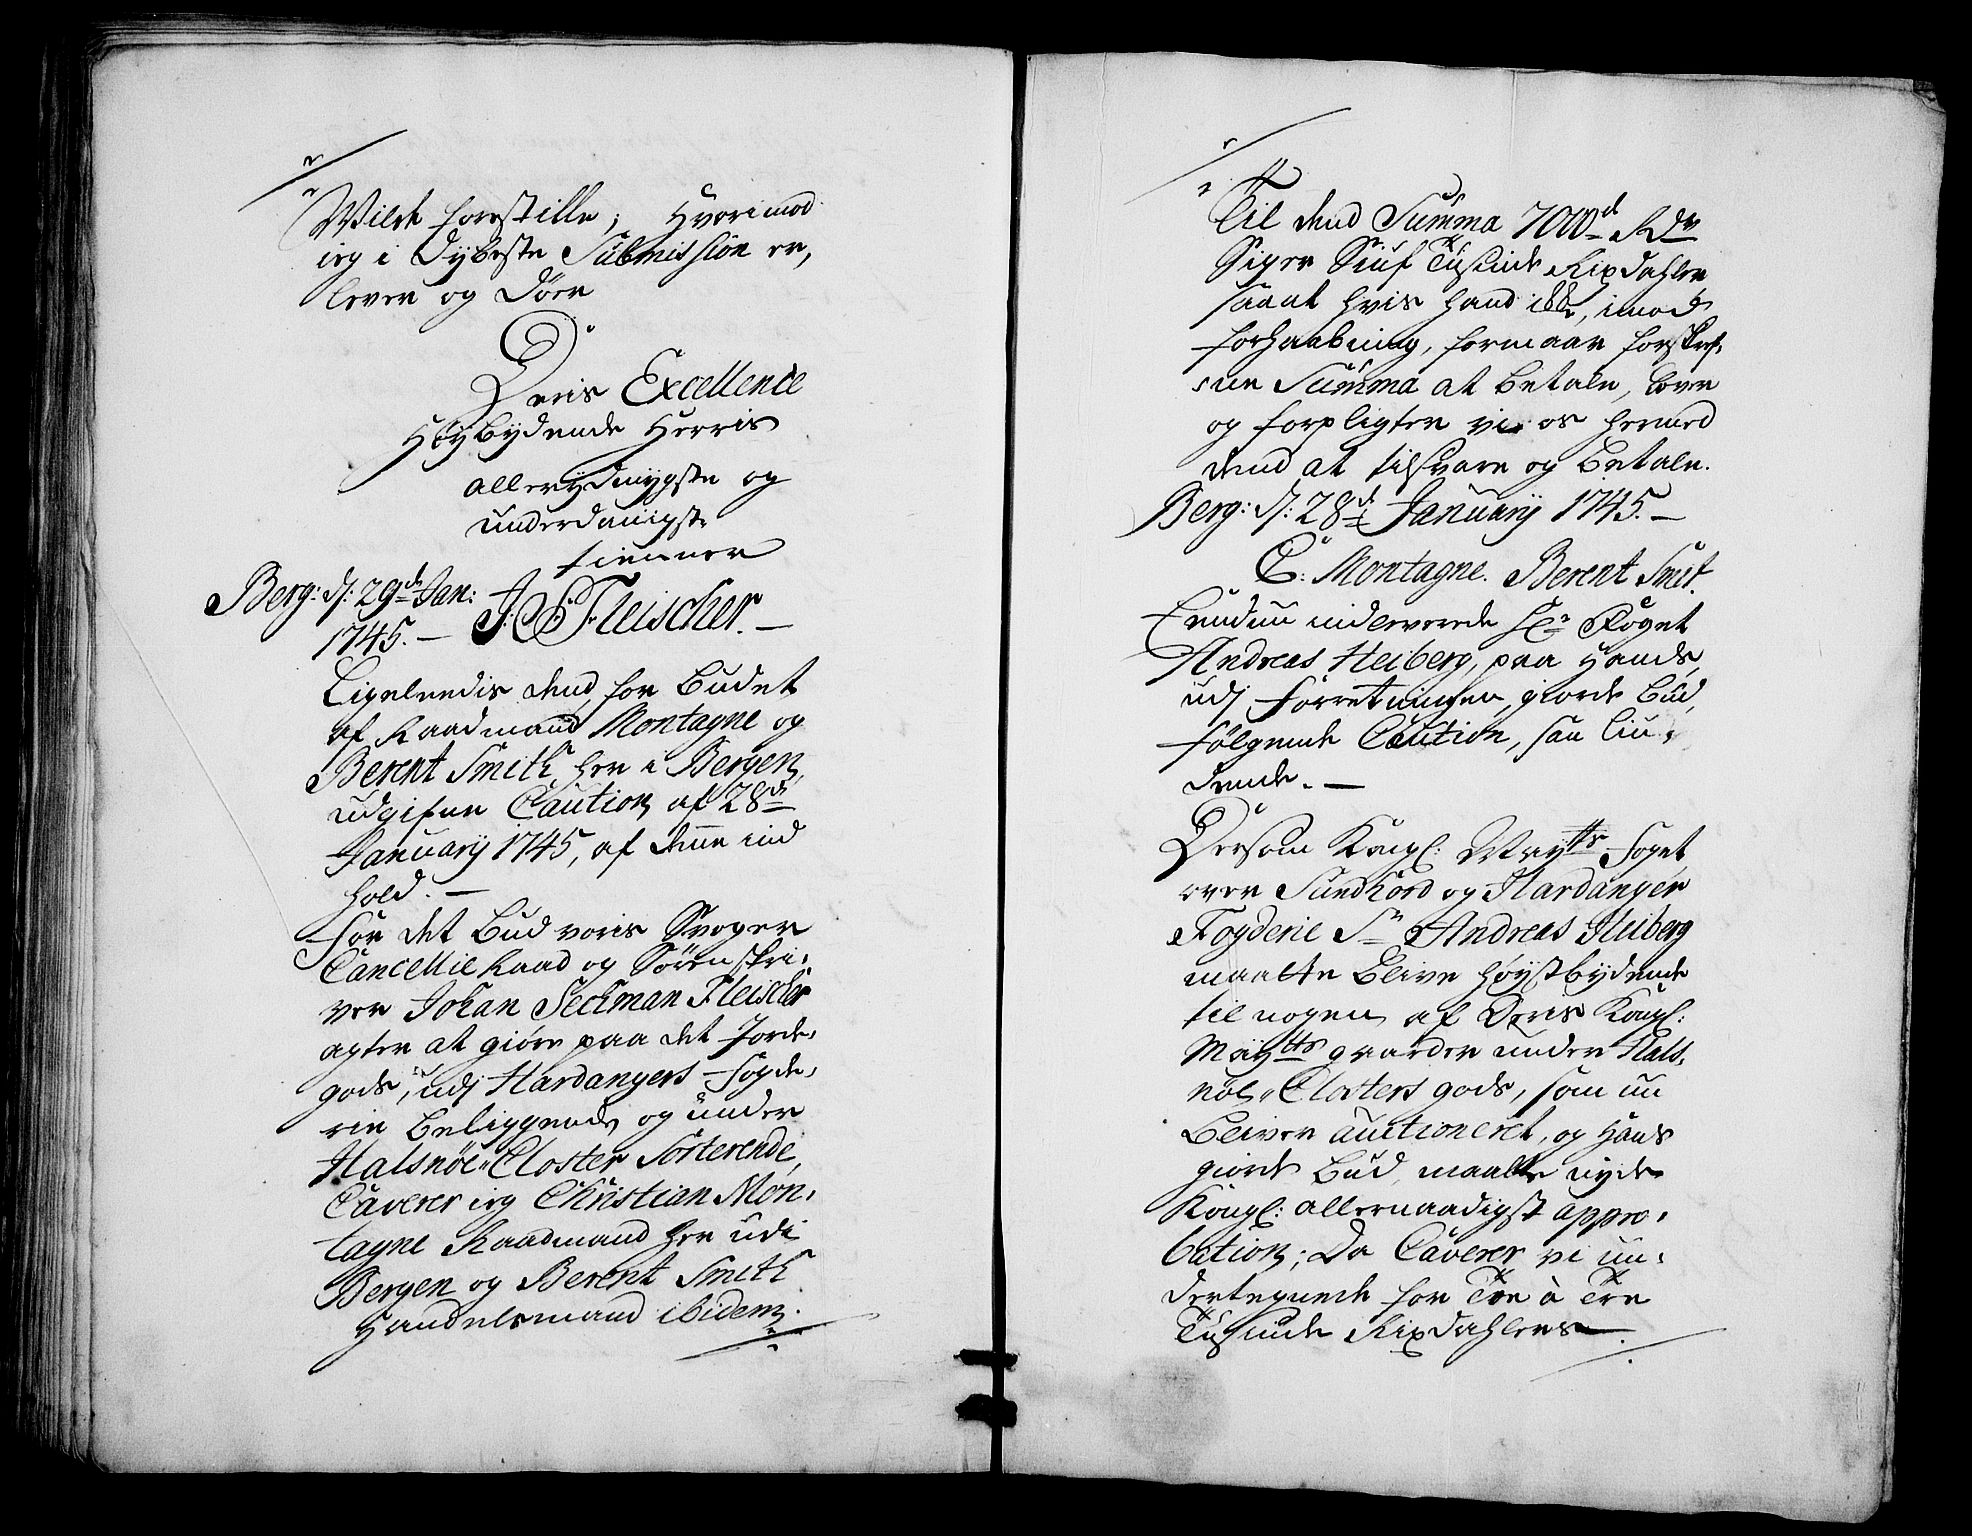 Wilde forestille; Hvorimod
ieg i Dybeste Submission er,
lever og Döer
Deris Excellence
Höybydende Herris
allerydmygste og
underdanigste
tienner
Berg: d: 29de Jan:
1745. — J: S: Fleischer. —
Ligeleedis dend for Budet
af Raadmand Montagne og
Berent Smith her i Bergen
udgifne Caution af 28de
January 1745, af denne ind
hold. —
For det Bud voris Svoger
Cancellie Raad og Sörenskri-
ver Johan Seckman Fleischer
agter at giöre paa det Jorde-
gods, udj Hardangers Fogde-
rie Beliggende og under
Halsnöe Closter Sorterende,
Caverer ieg Christian Mon-
tagne Raadmand her udi
Bergen og Berent Smith
Handelsmand ibidem.
Til dend Summa 7000de Rdr
Siger Siuf Tusinde Rixdahler
saa at hvis hand icke, imod
forhaabning, formaar forskref-
ne Summa at Betale, lover
og forpligter vi os hermed
dend at tilsvare og Betale.
Berg: d: 28de January 1745. —
C: Montagne. Berent Smit.
Endnu indleverede Hr Foget
Andreas Heiberg, paa Hands,
udj Forretningen, giorde Bud,
fölgende Caution, saa liu-
dende. —
Dersom Kongl: Mayts Foget
over Sundhord og Hardanger
Fogderie Sr Andreas Heiberg
maatte Blive höystbydende
til nogen af Deris Kongl:
Mayts gaarder under Hals-
nöe Closters gods, som nu
Bliver auctioneret, og Hans
giorde Bud maatte nyde
Kongl: allernaadigst appro-
bation; Da Caverer vi un-
dertegnede for Toe à Tre
Tusinde Rixdahlers